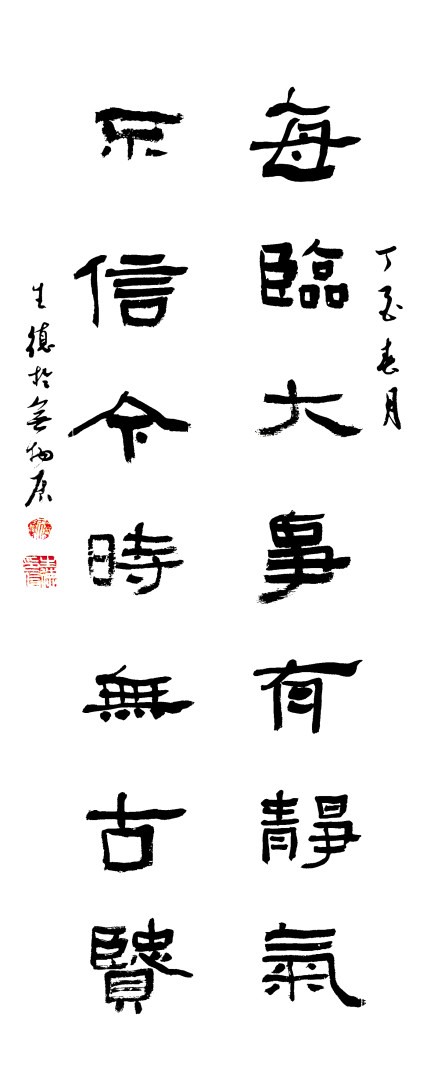 丁酉春月
每臨大事有靜氣
不信今時無古賢
生德於無物居